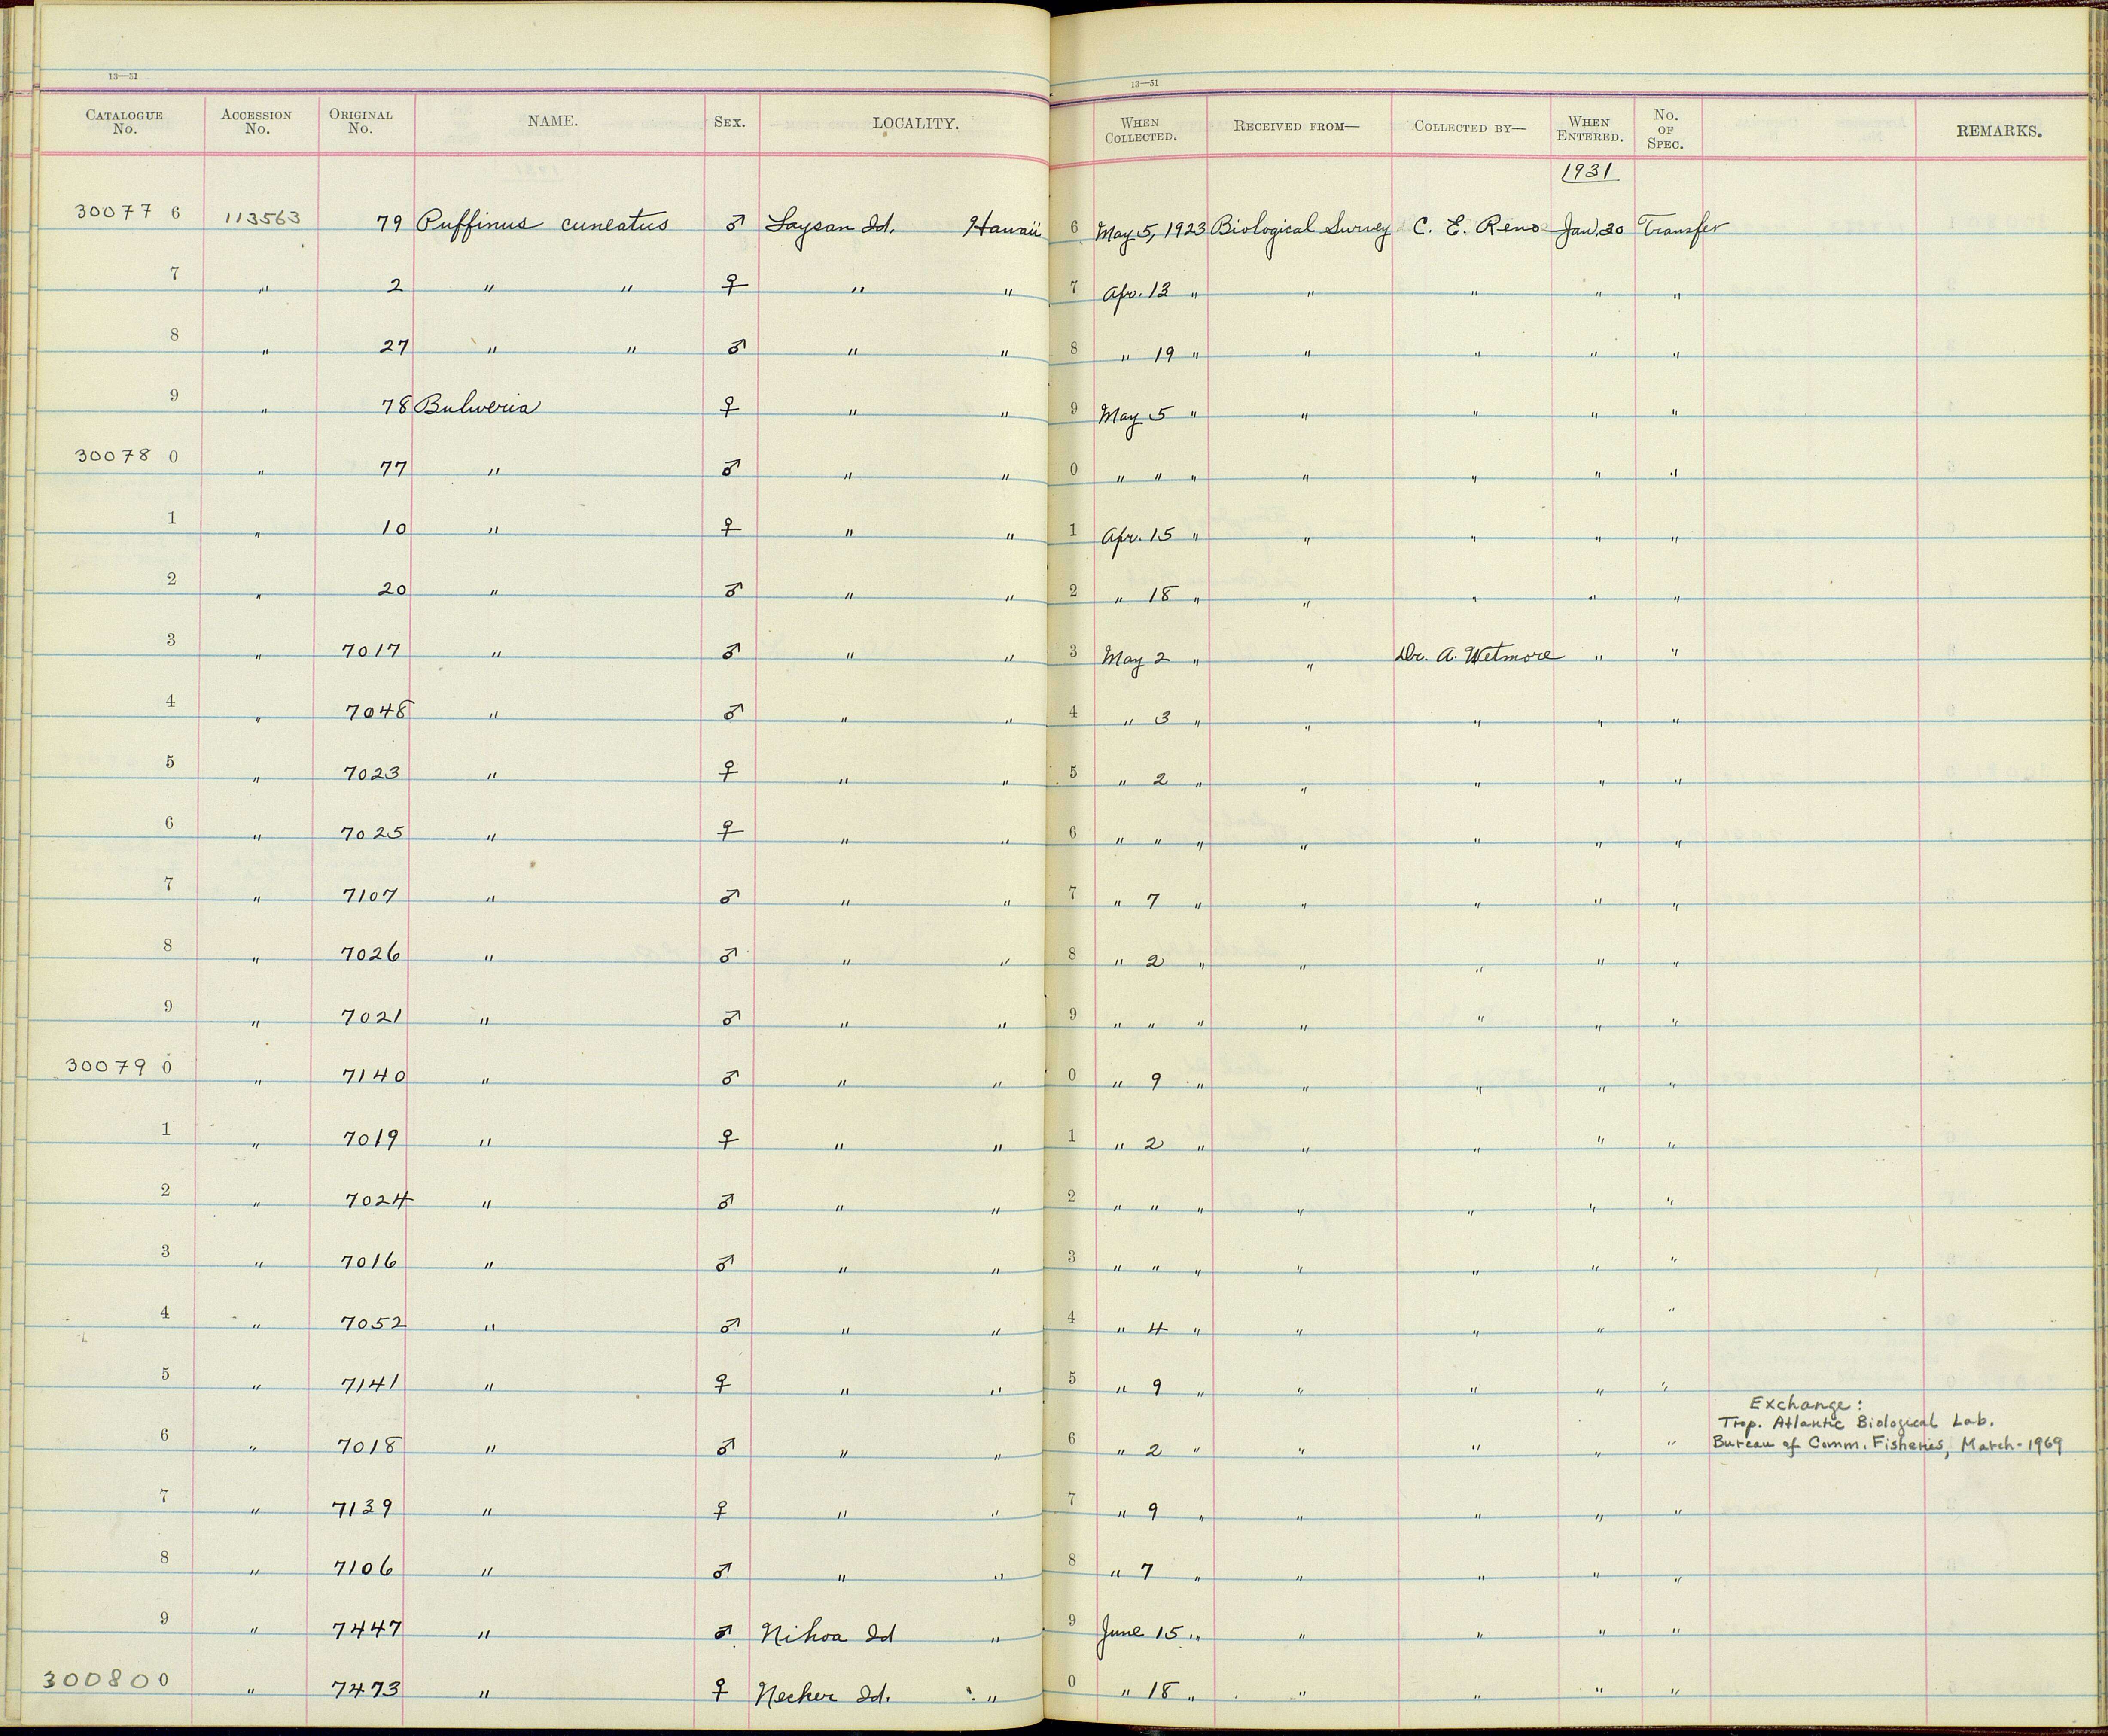 13—51 13—51
CATALOGUE No. ACCESSION No. ORIGINAL No. NAME. SEX. LOCALITY. WHEN COLLECTED. RECEIVED FROM— COLLECTED BY— WHEN ENTERED. No. OF SPEC. REMARKS.
1931
30077 6 113563 79 Puffinus cuneatus ♂ Laysan Id. Hawaii 6 May 5, 1923 Biological Survey C. E. Reno Jan. 30 Transfer
7 " 2 " " ♀ " " 7 Apr. 13 " " " " "
8 " 27 " " ♂ " " 8 " 19 " " " " "
9 " 78 Bulweria ♀ " " 9 May 5 " " " " "
30078 0 " 77 " ♂ " " 0 " " " " " " "
1 " 10 " ♀ " " 1 Apr. 15 " " " " "
2 " 20 " ♂ " " 2 " 18 " " " " "
3 " 7017 " ♂ " " 3 May 2 " " Dr. A. Wetmore " "
4 " 7048 " ♂ " " 4 " 3 " " " " "
5 " 7023 " ♀ " " 5 " 2 " " " " "
6 " 7025 " ♀ " " 6 " " " " " " "
7 " 7107 " ♂ " " 7 " 7 " " " " "
8 " 7026 " ♂ " " 8 " 2 " " " " "
9 " 7021 " ♂ " " 9 " " " " " " "
30079 0 " 7140 " ♂ " " 0 " 9 " " " " "
1 " 7019 " ♀ " " 1 " 2 " " " " "
2 " 7024 " ♂ " " 2 " " " " " " "
3 " 7016 " ♂ " " 3 " " " " " " "
4 " 7052 " ♂ " " 4 " 4 " " " " "
5 " 7141 " ♀ " " 5 " 9 " " " " "
Exchange:
Trop. Atlantic Biological Lab.
6 " 7018 " ♂ " " 6 " 2 " " " " " Bureau of Comm. Fisheries, March-1969
7 " 7139 " ♀ " " 7 " 9 " " " " "
8 " 7106 " ♂ " " 8 " 7 " " " " "
9 " 7447 " ♂ Nihoa Id " 9 June 15 " " " " "
30080 0 " 7473 " ♀ Necker Id. " 0 " 18 " " " " "